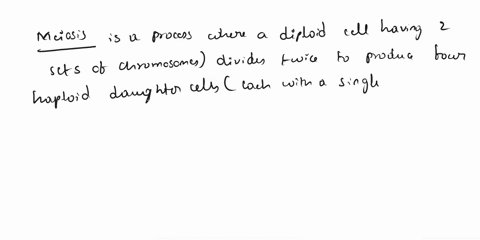 Meiosis is a process where a diploid cell having 2
sets of chromosomes) divides twice to produce four
haploid daughter cells ( each with a single